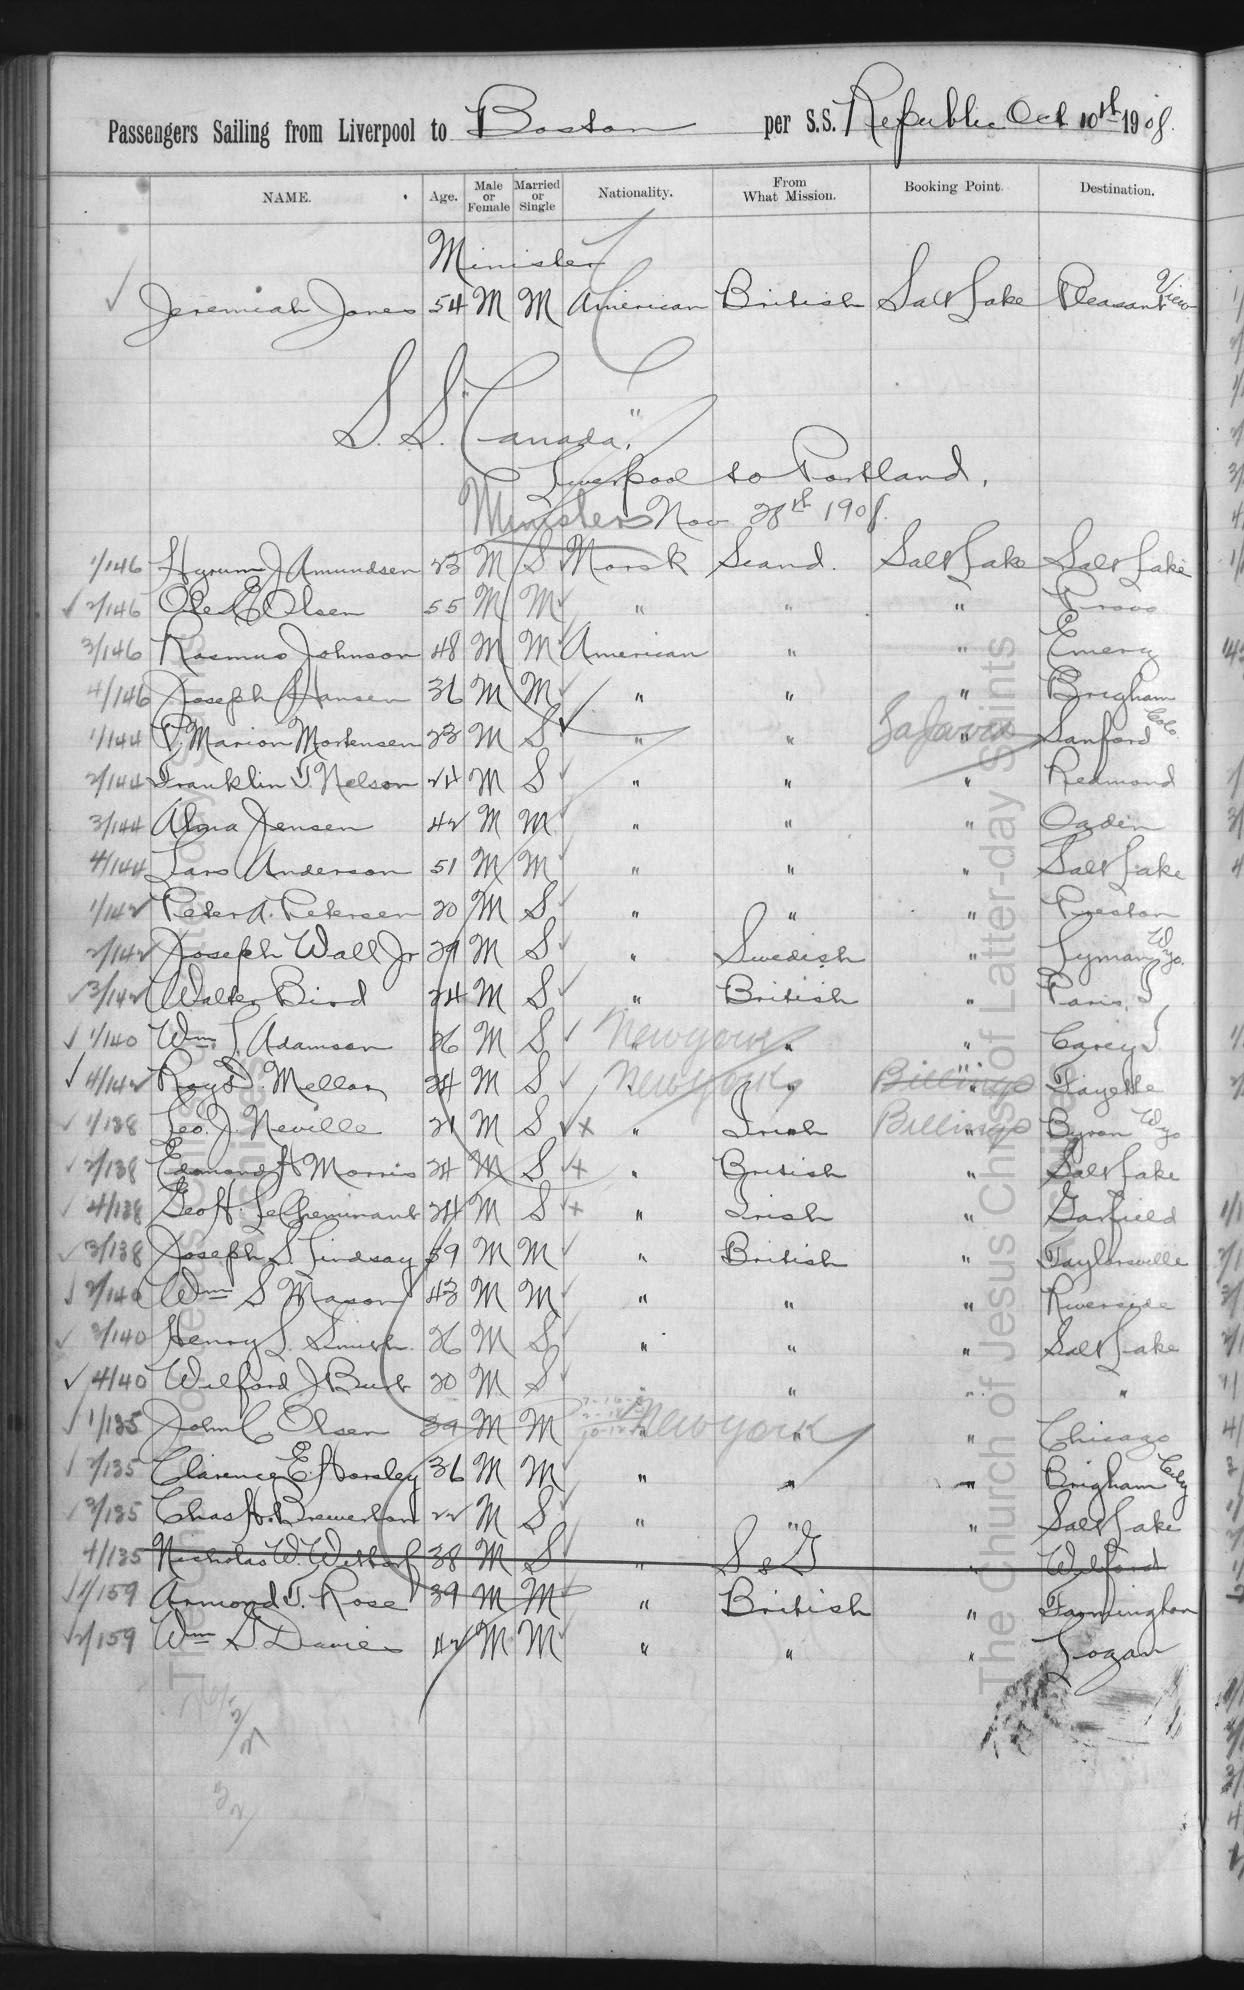 Passengers Sailing from Liverpool to Boston per S.S. Republic Oct 10th 1908.
NAME. Age. Male or Female Married or Single Nationality. From What Mission. Booking Point. Destination.
Minister
Jeremiah Jones 54 M M American British Salt Lake Pleasant View
S.S. "Canada,"
Liverpool to Portland,
Ministers Nov 28th 1908.
1/146 Hyrum J Amundsen 23 M S Norsk Scand. Salt Lake Salt Lake
2/146 Ole E Olsen 55 M M " " " Provo
3/146 Rasmus Johnson 48 M M American " " Emery
4/146 Joseph Hansen 36 M M " " " Brigham
1/144 P. Marion Mortensen 23 M S " " " Sanford Colo.
2/144 Franklin T. Nelson 24 M S " " " Redmond
3/144 Alma Jensen 42 M M " " " Ogden
4/144 Lars Anderson 51 M M " " " Salt Lake
1/142 Peter A. Petersen 20 M S " " " Preston
2/142 Joseph Wall Jr 29 M S " Swedish " Lyman Wyo.
3/142 Walter Bird 24 M S " British " Paris, I
1/140 Wm L Adamson 26 M S " New york " " Carey I
4/142 Roy D. Mellor 24 M S " New york " Billings " Fayette
1/138 Leo. J. Neville 21 M S x " Irish Billings " Byron Wyo
2/138 Edmond H Morris 24 M S x " British " Salt Lake
4/138 Geo H. LeCheminant 24 M S x " Irish " Garfield
3/138 Joseph S Lindsay 59 M M " British " Taylorsville
2/140 Wm S Mason 43 M M " " " Riverside
3/140 Henry L. Smith. 26 M S " " " Salt Lake
4/40 Wilford J Burt 20 M S " " " "
1/135 John C Olsen 39 M M New york " " Chicago
2/135 Clarence E. Horsley 36 M M " " " Brigham City
3/135 Chas H. Brewerton 22 M S " " " Salt Lake
4/135 Nicholas W. 38 M S " S & G " Wilford
1/159 Armond T. Rose 39 M M " British " Farmington
2/159 Wm S. Davies 42 M M " " " Logan
The Church of Jesus Christ of Latter-day Saints